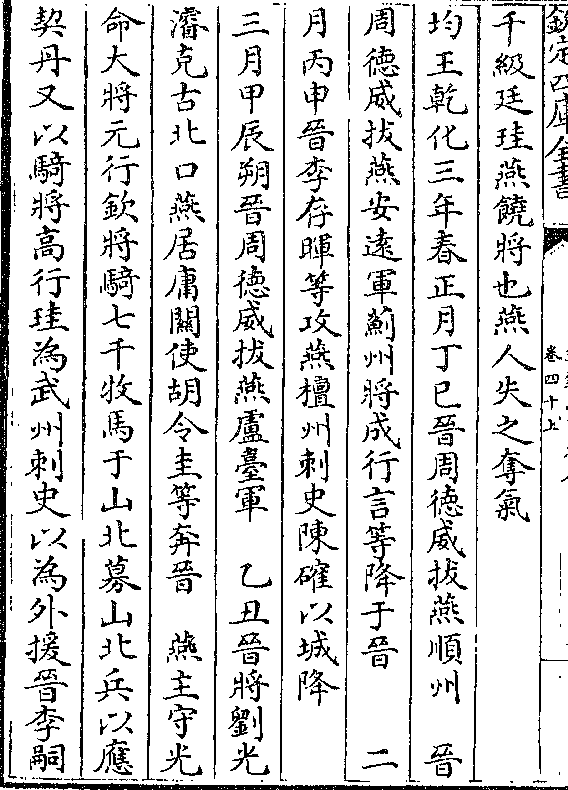 欽定四庫全書
卷四十上
千級廷珪燕饒將也燕人失之奪氣
均王乾化三年春正月丁巳晉周徳威拔燕順州　晉
周徳威拔燕安逺軍薊州將成行言等降于晉　二
月丙申晉李存暉等攻燕檀州刺史陳確以城降
三月甲辰朔晉周徳威拔燕盧臺軍　乙丑晉將劉光
濬克古北口燕居庸關使胡令圭等奔晉　燕主守光
命大將元行欽將騎七千牧馬于山北募山北兵以應
契丹又以騎將高行珪為武州刺史以為外援晉李嗣